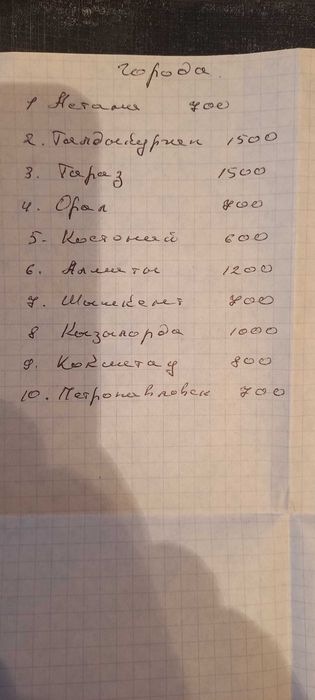 Города.
1 Астана 700
2. Талдыкурган 1500
3. Тараз 1500
4. Орал 700
5. Костонай 600
6. Алматы 1200
7. Шымкент 700
8 Кызылорда 1000
9. Кокшетау 800
10. Петропавловск 700